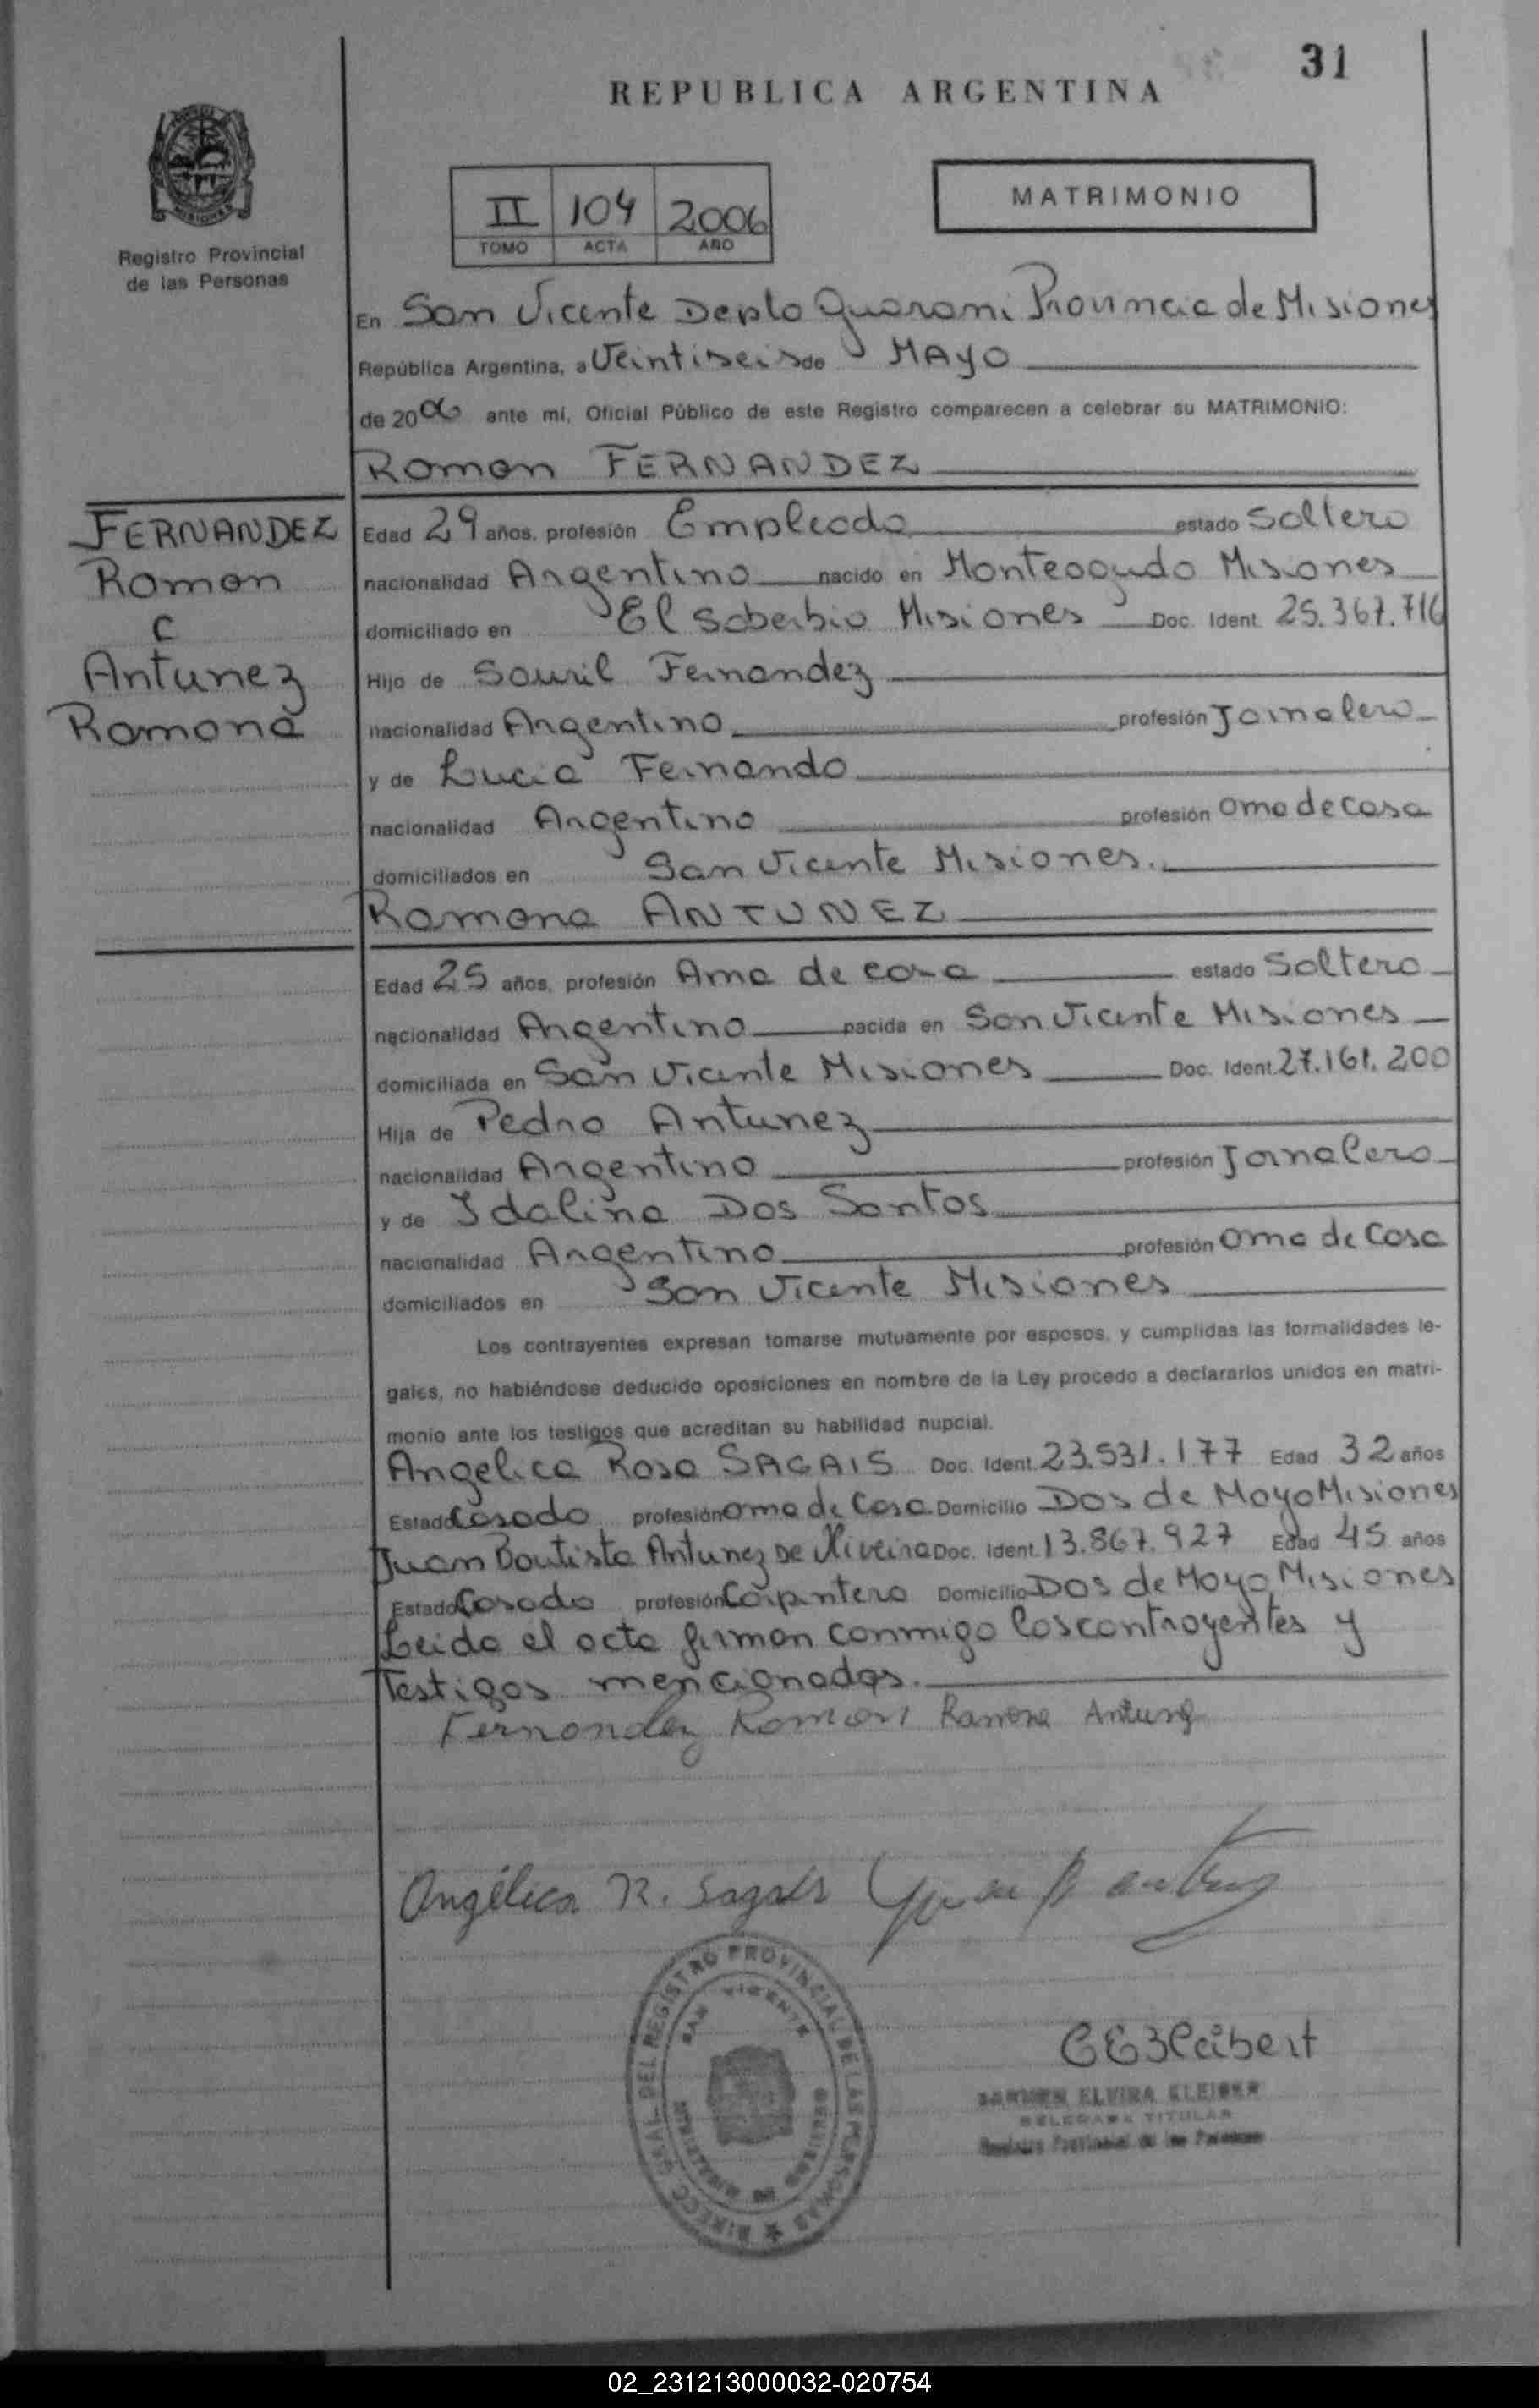 31
REPUBLICA ARGENTINA
MISIONES
Registro Provincial
de las Personas
II 104 2006
TOMO ACTA AÑO
MATRIMONIO
En San Vicente Depto Guarani Provincia de Misiones
República Argentina, a Veintiseis de MAYO
de 2006 ante mí, Oficial Público de este Registro comparecen a celebrar su MATRIMONIO:
Ramon FERNANDEZ
FERNANDEZ
Ramon
C
Antunez
Ramona
Edad 29 años, profesión Empleado estado Soltero
nacionalidad Argentino nacido en Monteagudo Misiones
domiciliado en El Soberbio Misiones Doc. Ident. 25.367.716
Hijo de Sauril Fernandez
nacionalidad Argentino profesión Jornalero
y de Lucia Fernando
nacionalidad Argentina profesión ama de casa
domiciliados en San Vicente Misiones.
Ramona ANTUNEZ
Edad 25 años, profesión Ama de casa estado Soltera
nacionalidad Argentina nacida en San Vicente Misiones
domiciliada en San Vicente Misiones Doc. Ident. 27.161.200
Hija de Pedro Antunez
nacionalidad Argentino profesión Jornalero
y de Idalina Dos Santos
nacionalidad Argentina profesión ama de Casa
domiciliados en San Vicente Misiones
Los contrayentes expresan tomarse mutuamente por esposos, y cumplidas las formalidades le-
gales, no habiéndose deducido oposiciones en nombre de la Ley procedo a declararlos unidos en matri-
monio ante los testigos que acreditan su habilidad nupcial.
Angelica Rosa SAGAIS Doc. Ident. 23.531.177 Edad 32 años
Estado Casada profesión ama de Casa Domicilio Dos de Mayo Misiones
Juan Bautista Antunez De Oliveira Doc. Ident. 13.867.927 Edad 45 años
Estado Casado profesión Carpintero Domicilio Dos de Mayo Misiones
Leida el acta firman conmigo los contrayentes y
Testigos mencionados.
Fernandez Ramon Ramona Antunez
Angélica R. Sagais Juan B Antunez
DIRECC. GRAL. DEL REGISTRO PROVINCIAL DE LAS PERSONAS
SAN VICENTE
MINISTERIO DE GOBIERNO
CARMEN ELVIRA KLEIBER
DELEGADA TITULAR
Registro Provincial de las Personas
02_231213000032-020754